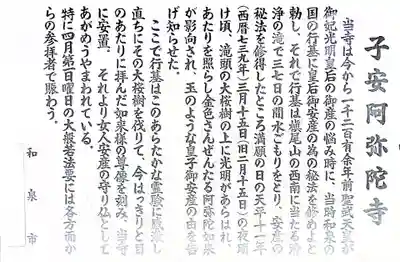 子安阿弥陀寺
当寺は今から一千二百有余年前聖武天皇が
御妃光明皇后の御産の悩み時に、当時和泉の
国の行基に皇后御安産の為の秘法を修めよと
勅し、それで行基は槇尾山の西南に当たる清
浄の滝で三七日の間水ごもりをとり、安産の
秘法を修得したところ満願の日の天平十一年
(西暦七三九年)三月十五日(旧二月十五日)の夜明
け頃、滝頭の大桜樹の上に光明があらはれ、
あたりを照らし金色さんぜんたる阿弥陀如来
が影向され、玉のような皇子御安産の由を告
げ知らせた。
ここで行基はこのあらたかな霊験に感激し
直ちにその大桜樹を伐りて、今はっきりと目
のあたりに拝んだ如来様の尊像を刻み、当寺
に安置、それより女人安産の守り仏として
あがめうやまわれている。
特に四月第一日曜日の大般若法要には各方面か
らの参拝者で賑わう。
和泉市